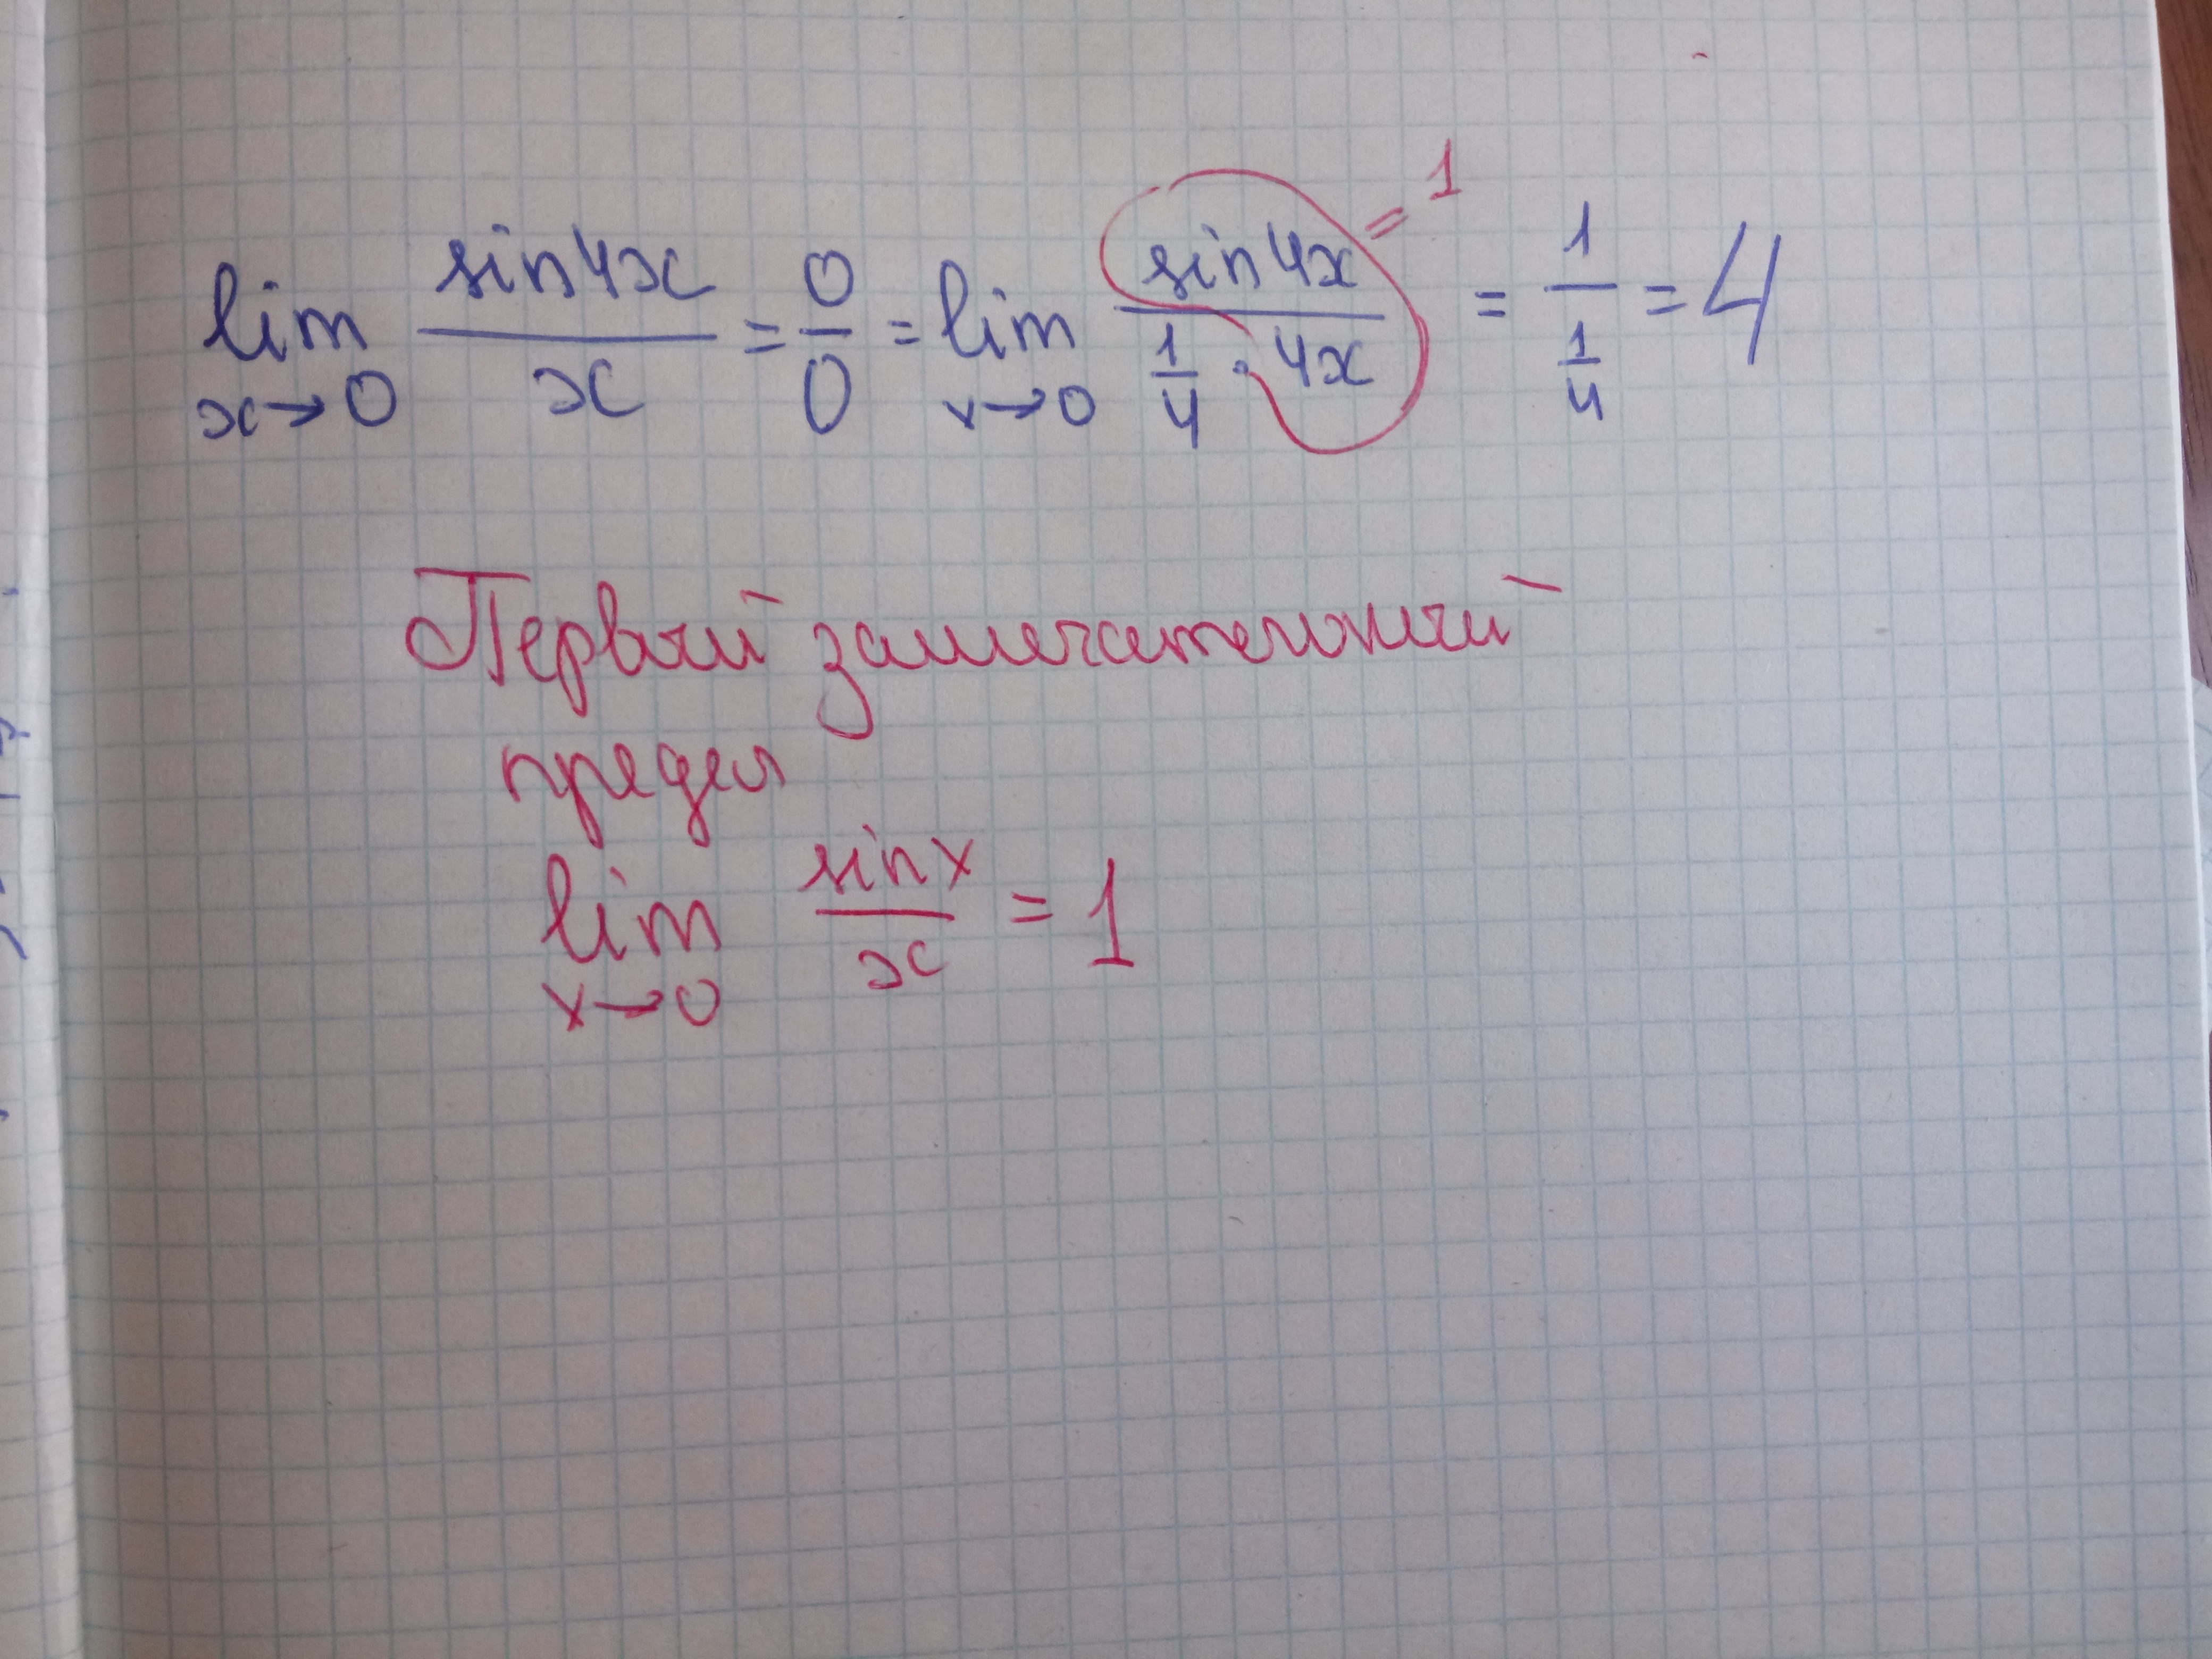 lim x→0 sin4x / x = 0/0 = lim x→0 sin4x / (1/4 · 4x) = 1 = 1 / (1/4) = 4
Первый замечательный
предел
lim x→0 sinx / x = 1